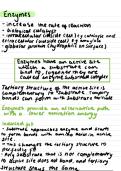 Enzymes
- increase the rate of reaction
- biological catalyst
- intracellular (inside cell) eg catalase
- extracellular (outside cell) eg amylase
- globular protein (hydrophilic on surface)
Enzymes have an active site
which a substrate can
bind to, together they are
called enzyme substrate complex
Tertiary structure of the active site is
complementary to substrate. Tempory
bonds can form with substrate
Enzymes provide an alternative path
with a lower activation energy
Induced fit
- Substrate approaches enzyme and start
to form bonds with amino acids in active
site
- This changes the tertiary structure to
perfectly fit
- Any substrate that is not complementary
to active site does not bind, and tertiary
structure stays the same